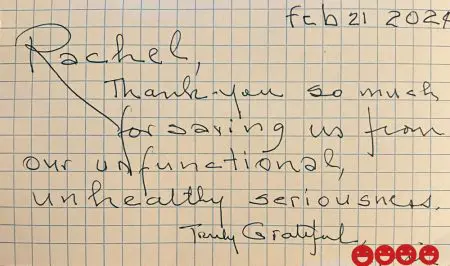 Feb 21 2024
Rachel,
Thank-you so much
for saving us from
our unfunctional,
unhealthy seriousness.
Truly Grateful,